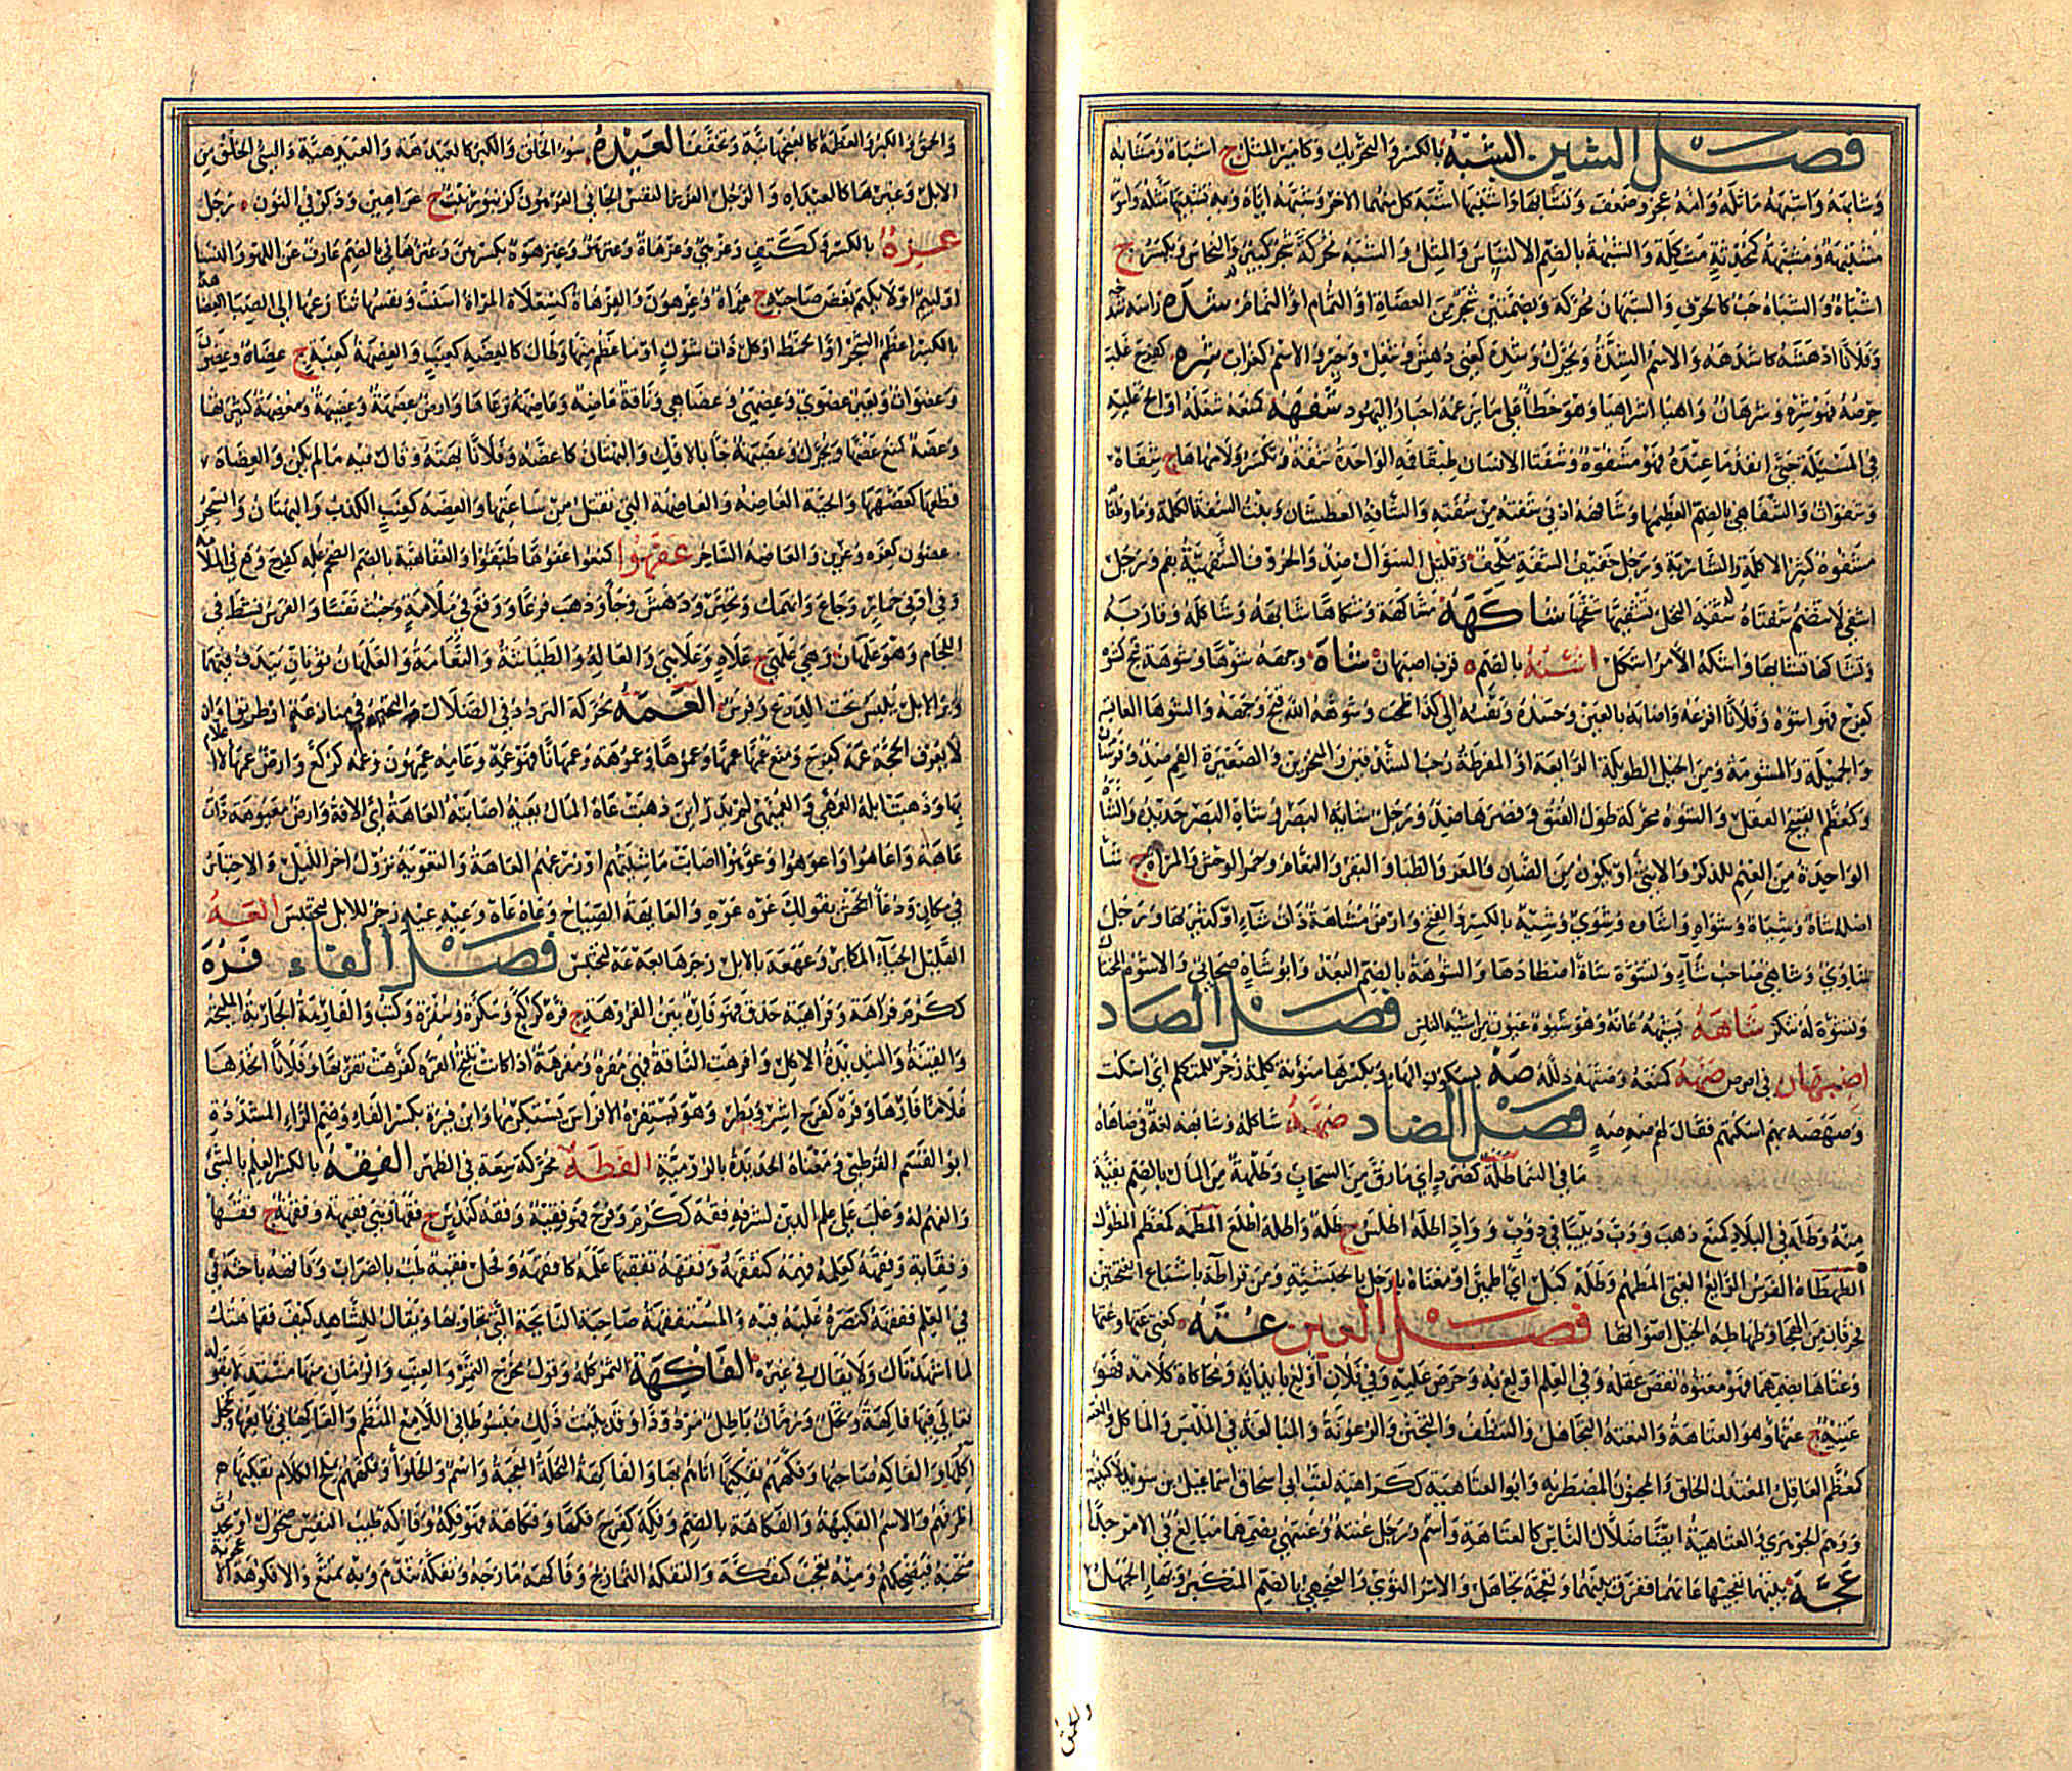 فصل الشين الشبه بالكسر والتحريك وكامير المثل ج اشباه ومشابه
وشابهه واشبهه ماثله وامه عجز وضعف وتشابها واشتبها اشبه كل منهما الاخر وشبهه اياه وبه تشبيها مثله وامور
مشتبهة ومشبهة كمعظمة مشكلة والشبهة بالضم الالتباس والمثل والشبه محركة شجر كبير والنحاس ويكسر ج
اشباه والشباه حب كالحرف والشبهان محركة وبضمتين شجر من العضاه او الثمام او النمام شده راسه
وفلانا ادهشه كاشدهه والاسم الشده ويحرك وشده كعني دهش وشغل وحير والاسم كغراب شره كفرح غلب
حرصه فهو شره وشرهان واهيا اشراهيا وهو خطا على ما يزعمه احبار اليهود شفهه كمنعه شغله او الح عليه
في المسئلة حتى انفد ما عنده فهو مشفوه وشفتا الانسان طبقا فمه الواحدة شفة وتكسر ولامها هاء ج شفاه
وشفوات والشفاهي بالضم العظيمها وشافهه ادنى شفته من شفته والشافه العطشان وبنت الشفة الكلمة وماء وطعام
مشفوه كثير الاكلة والشاربة ورجل خفيف الشفة ملحف وقليل السؤال ضد والحروف الشفهية بفم ورجل
اشفى لا تنضم شفتاه شقه النخل تشقيها شقحا شاكهه مشاكهة وشكاها شابهه وشاكله وقاربه
وتشاكها تشابها واشكه الامر اشكل اشنه بالضم ة قرب اصبهان شاه وجهه شوها وشوهة قبح كشوه
كفرح فهو اشوه وفلانا افزعه واصابه بالعين وحسده ونفسه الى كذا طمحت وشوهه الله قبح وجهه والشوهاء العابسة
والجميلة والمشومة ومن الخيل الطويلة الرائعة او المفرطة رحب الشدقين والمنخرين والصغيرة الفم ضد
وكمعظم القبيح العقل والشوه محركة طول العنق وقصرها ضد ورجل شائه البصر وشاه البصر حديده والشاة
الواحدة من الغنم للذكر والانثى او يكون من الضان والمعز والظباء والبقر والنعام وحمر الوحش والمراة ج شاء
اصله شاه وشياه وشواه واشاوه وشوي وشيه بالكسر والفتح وارض مشاهة ذات شاء او كثيرتها ورجل
شاوي وشاهي صاحب شاء وتشوه شاة اصطادها والشوهة بالضم البعد وابو شاه صحابي والاشوه المختال
وتشوه له تنكر شاهه يشيهه عانه وهو شيوه عيون من اشيه الناس فصل الصاد
اصبهان في ا ص ص صبهه كمنعه وصبهه ذلله صه بسكون الهاء وبكسرها منونة كلمة زجر للمتكلم اي اسكت
وصهصه بهم اسكتهم فقال لهم صه صه فصل الضاد ضبهه شاكله وشابهه لغة في ضاهاه
ما في السماء طلهة كصرد اي ما رق من السحاب وطلهة من المال بالضم بقية
منه وطله في البلاد كمنع ذهب ودب دبيبا في دوب وواد اطله اطلس ج طله واطله اطلع المطمه كمعظم المطول
الطهطاه الفرس الرائع الفتى المطهم وطه كبل اي اطمئن او معناه يا رجل بالحبشية ومن قرا طه باشباع الفتحتين
فحرفان من الهجاء وطهاطه الخيل اصواتها فصل العين عته كعني عتها وعتها
وعتاها بضمهما فهو معتوه نقص عقله وفي العلم اولع به وحرص عليه وفي فلان اولع بايذائه ومحاكاة كلامه فهو
عتيه ج عتهاء وهو العتاهة والتعته التجاهل والتنظف والتجنن والرعونة والمبالغة في الملبس والماكل
كمعظم العاقل المعتدل الخلق والمجنون المضطربه وابو العتاهية ككراهية لقب ابي اسحاق اسماعيل بن سويد لا كنيته
ووهم الجوهري والعتاهية ايضا ضلال الناس كالعتاهة واسم ورجل عتته وعتتهي بضمهما مبالغ في الامر جدا
عجه بينهما تعجيها عانهما ففرق بينهما وتعجه تجاهل والامر التوى والعنجهي بالضم المتكبر وبهاء الجهل
والحمق
والحمق والكبر والعظمة كالعنجهانية وتخفف العيده سوء الخلق والكبر كالعيدهة والعيدهية والسيئ الخلق من
الابل وغيرها كالعيداه والرجل العزيز النفس الجافي العرهون كزنبور نبت ج عراهين وذكر في النون رجل
عزه بالكسر وككتف وعزهى وعزهاة وعنزهوة بكسرهن وعنزهاني بالضم عازف عن اللهو والنساء
او لئيم او لا يكتم بغض صاحبه ج عزاه وعزهون والعزهاة كسعلاة المراة اسنت ونفسها تنازعها الى الصبا العضاهة
بالكسر اعظم الشجر او الخمط او كل ذات شوك او ما عظم منها وطال كالعضه كعنب والعضهة كعنبة ج عضاه وعضون
وعضوات وبعير عضوي وعضهي وعضاهي وناقة عاضهة وعاضه رعاها وارض عضهة وعضيهة ومعضهة كثيرتها
وعضه كمنع عضها ويحرك وعضيهة جاء بالافك والبهتان كاعضه وفلانا بهته وقال فيه ما لم يكن والعضاه
قطعها كعضهها والحية العاضه والعاضهة التي تقتل من ساعتها والعضه كعنب الكذب والبهتان والسحر
عضون كعزه وعزين والعاضه الساحر عفهوا كمنعوا عفوها طبقوا والعفاهية بالضم الضخم عله كفرح وقع في الملامة
وفي ادنى خمار وجاع وانهمك وتحير ودهش وجاء وذهب فزعا ووقع في ملامة وخبث نفسا والفرس نشط في
اللجام وهو علهان وهي علهى ج علاه وعلاهى والعاله والطياشة والنعامة والعلهان ثوبان يندف فيهما
وبر الابل يلبس تحت الدرع وفرس العمه محركة التردد في الضلال والتحير في منازعة او طريق او ان
لا يعرف الحجة عمه كفرح ومنع عمها وعموها وعموهة وعمهانا فهو عمه وعامه عمهون وعمه كركع وارض عمهاء لا اعلام
بها وذهبت ابله العمهى والعميهى لم يدر اين ذهبت عاه المال يعيه اصابته العاهة اي الافة وارض معيوهة ذات
عاهة واعاهوا واعوهوا وعوهوا اصابت ماشيتهم او زرعهم العاهة والتعويه نزول اخر الليل والاحتباس
في مكان ودعاء الجحش بقولك عوه عوه والعائهة الصياح وعاه عاه وعيه عيه زجر للابل لتحتبس العه
القليل الحياء المكابر وعهعه بالابل زجرها بعه عه لتحتبس فصل الفاء فره
ككرم فراهة وفراهية حذق فهو فاره بين الفروهة ج فره كركع وسكرة وسفرة وكتب والفارهة الجارية المليحة
والفتية والشديدة الاكل وافرهت الناقة فهي مفره ومفرهة اذا كانت تنتج الفره كفرهت تفريها وفلان اتخذها
غلاما فارها وفره كفرح اشر وبطر وهو يستفره الافراس يستكرمها وابن فيره بكسر الفاء وضم الراء المشددة
ابو القسم القرطبي ومعناه الحديد بالرومية الفطه محركة سعة في الظهر الفقه بالكسر العلم بالشئ
والفهم له وغلب على علم الدين لشرفه فقه ككرم وفرح فهو فقيه وفقه كندس ج فقهاء وهي فقيهة وفقهة ج فقهاء
وفقائه وفقهه كعلمه فهمه كتفقهه وفقهه تفقيها علمه كافقهه وفحل فقيه طب بالضراب وفاقهه باحثه في
في العلم ففقهه كنصره غلبه فيه والمستفقهة صاحبة النائحة التي تجاوبها ويقال للشاهد كيف فقاهتك
لما اشهدناك ولا يقال في غيره الفاكهة الثمر كله وقول مخرج التمر والعنب والرمان منها مستدلا بقوله
تعالى فيهما فاكهة ونخل ورمان باطل مردود وقد بينت ذلك مبسوطا في اللامع المعلم والفاكهاني بائعها وكخجل
اكلها والفاكه صاحبها وفكههم تفكيها اتاهم بها والفاكهة النخلة المعجبة واسم والحلواء وفكههم بملح الكلام تفكيها
اطرفهم والاسم الفكيهة والفكاهة بالضم وفكه كفرح فكها وفكاهة فهو فكه وفاكه طيب النفس ضحوك او يحدث
صحبه فيضحكهم ومنه تعجب كتفكه والتفاكه التمازح وفاكهه مازحه وتفكه تندم وبه تمتع والافكوهة